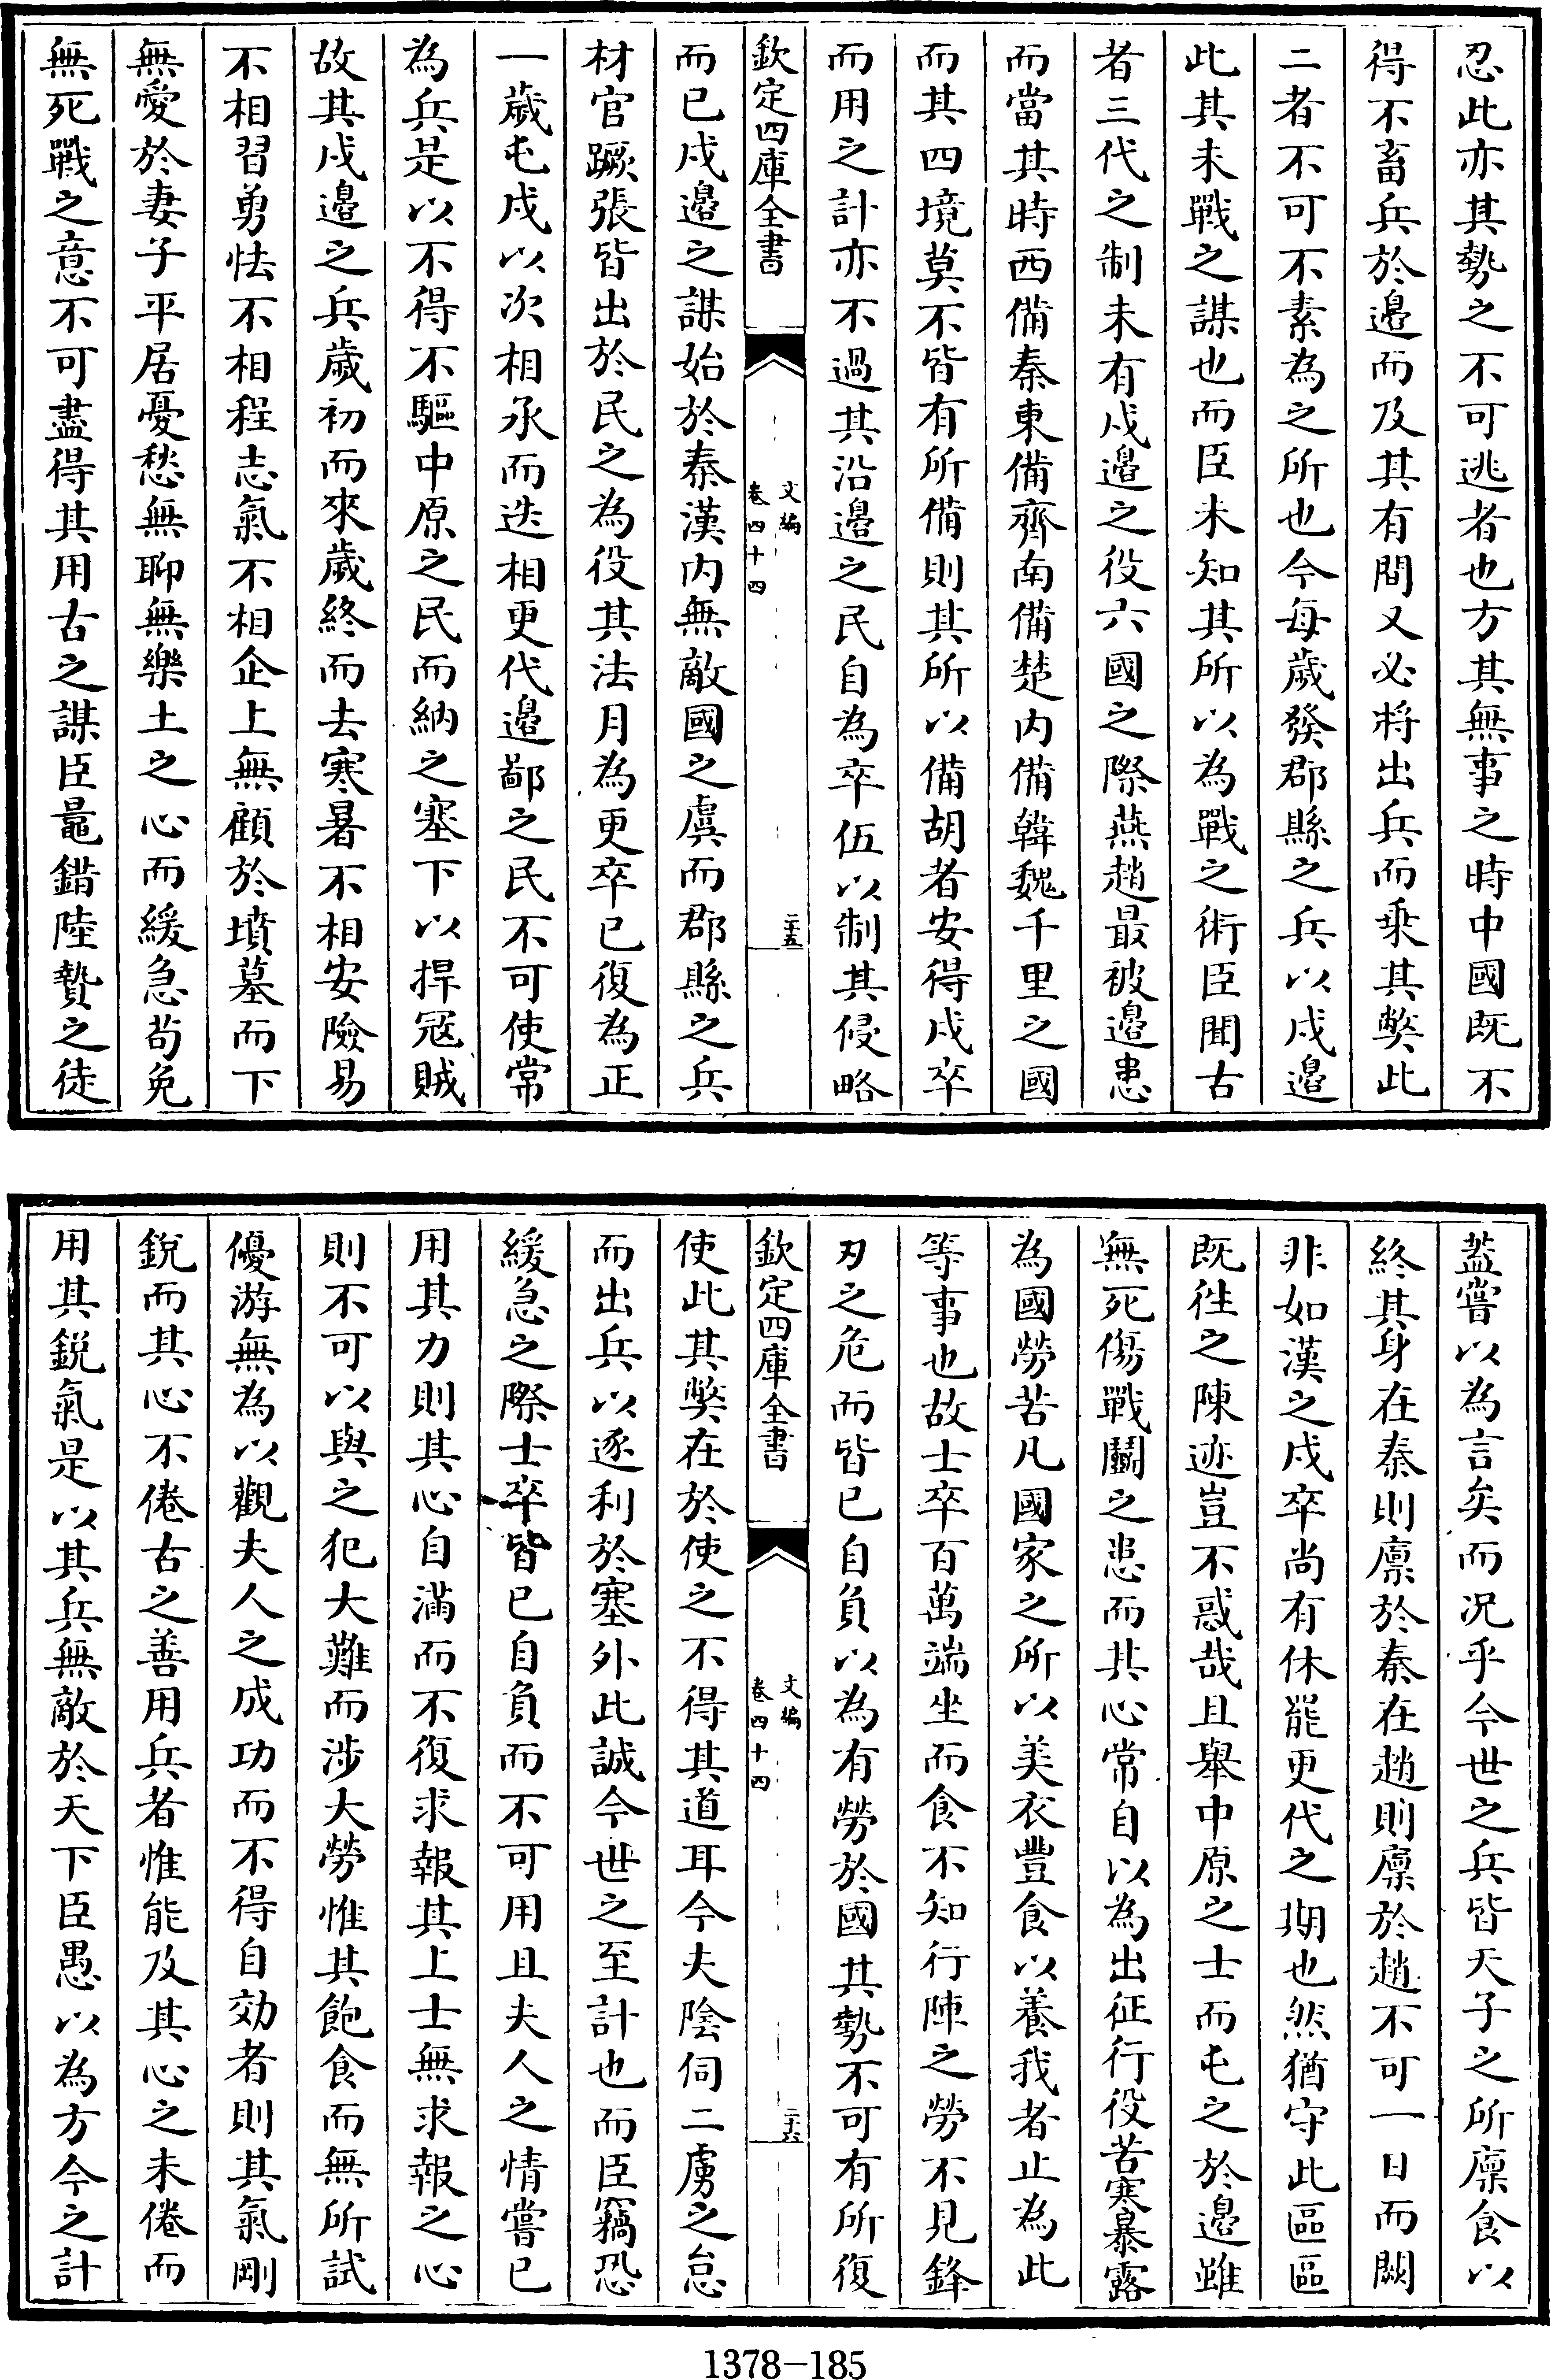 忍此亦其勢之不可逃者也方其無事之時中國既不
得不畜兵於邉而及其有間又必將出兵而乗其弊此
二者不可不素為之所也今每歲發郡縣之兵以戍邉
此其未戰之謀也而臣未知其所以為戰之術臣聞古
者三代之制未有戍邉之役六國之際燕趙最被邉患
而當其時西備秦東備齊南備楚内備韓魏千里之國
而其四境莫不皆有所備則其所以備胡者安得戍卒
而用之計亦不過其沿邉之民自為卒伍以制其侵略
欽定四庫全書
文編
卷四十四
二十五
而已戍邉之謀始於秦漢内無敵國之虞而郡縣之兵
材官蹶張皆出於民之為役其法月為更卒已復為正
一歲屯戍以次相承而迭相更代邉鄙之民不可使常
為兵是以不得不驅中原之民而納之塞下以捍冦賊
故其戍邉之兵歲初而來歲終而去寒暑不相安險易
不相習勇怯不相程志氣不相企上無顧於墳墓而下
無愛於妻子平居憂愁無聊無樂土之心而緩急苟免
無死戰之意不可盡得其用古之謀臣鼂錯陸贄之徒
葢嘗以為言矣而況乎今世之兵皆天子之所廩食以
終其身在秦則廪於秦在趙則廪於趙不可一日而闕
非如漢之戍卒尚有休罷更代之期也然猶守此區區
既徃之陳迹豈不惑哉且舉中原之士而屯之於邉雖
無死傷戰鬭之患而其心常自以為出征行役苦寒暴露
為國勞苦凡國家之所以美衣豐食以養我者止為此
等事也故士卒百萬端坐而食不知行陣之勞不見鋒
刃之危而皆已自負以為有勞於國其勢不可有所復
欽定四庫全書
文編
卷四十四
二十六
使此其弊在於使之不得其道耳今夫陰伺二虜之怠
而出兵以逐利於塞外此誠今世之至計也而臣竊恐
緩急之際士卒皆已自負而不可用且夫人之情嘗已
用其力則其心自滿而不復求報其上士無求報之心
則不可以與之犯大難而涉大勞惟其飽食而無所試
優游無為以觀夫人之成功而不得自効者則其氣剛
銳而其心不倦古之善用兵者惟能及其心之未倦而
用其銳氣是以其兵無敵於天下臣愚以為方今之計
1378-185